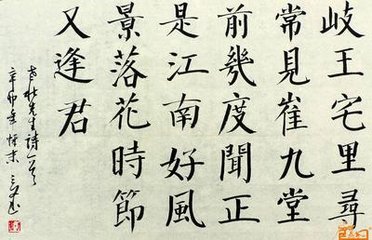 岐王宅里尋
常見崔九堂
前幾度聞正
是江南好風
景落花時節
又逢君
老杜先生詩一首
辛卯年